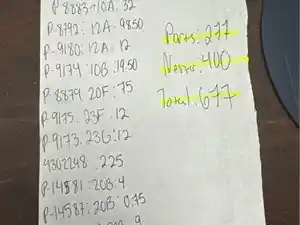 P-8883-10A: 32
P-8792: 12A: 9850
P-9180: 12A: 12
P-9174: 10B: 19.50
P-8879: 20F: 75
P-9175: 23F: 12
P-9173: 23G: 12
4302248: 225
P-14581: 20B: 4
P-14587: 20B: 0.75
9
Parts: 277
400
Total: 677